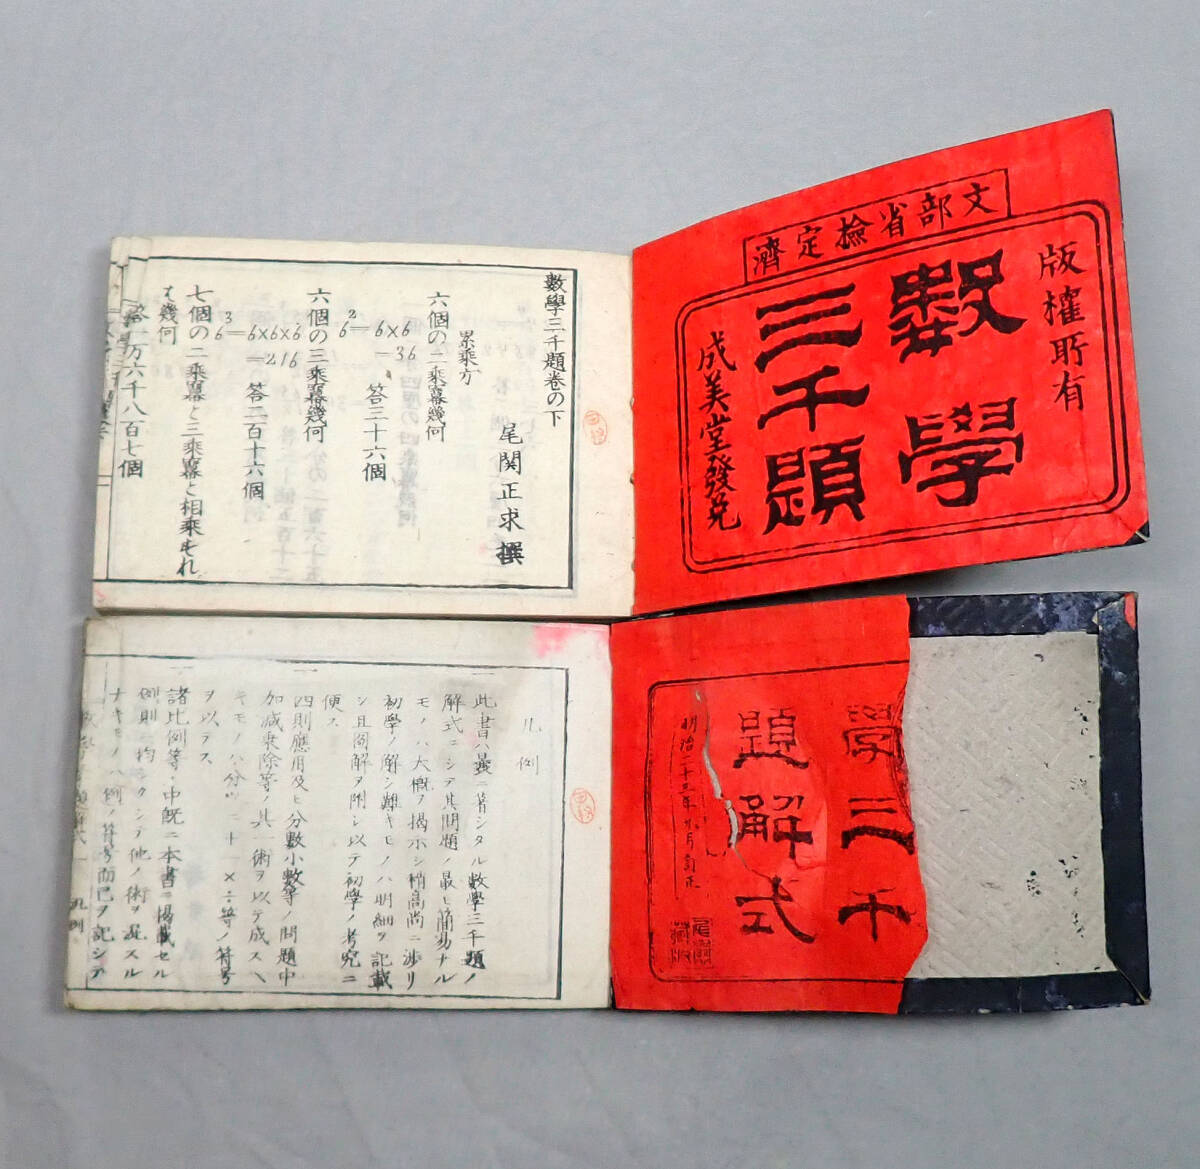 文部省檢定濟
版權所有
數學
三千題
成美堂發兌
數學三千題卷の下
尾関正求撰
累乘方
六個の二乘冪幾何
6²=6×6
=36
答三十六個
六個の三乘冪幾何
6³=6×6×6
=216
答二百十六個
七個の二乘冪と三乘冪と相乘
は幾何
答一万六千八百七個
學三千
題解式
明治二十三年
月訂正
凡例
一此書ハ曩ニ著シタル數學三千題ノ
解式ニシテ其問題ノ最モ簡易ナル
モノハ大概ヲ掲示シ稍高尚ニ渉リ
初學ノ解シ難キモノハ明細ヲ記載
シ且圖解ヲ附シ以テ初學ノ考究ニ
便ス
一四則應用及ヒ分數小數等ノ問題中
加減乘除等ノ其一術ヲ以テ成ス
キモノハ分ツニ十一×÷等ノ符号
ヲ以テス
一諸比例等ノ中既ニ本書ニ掲載セル
例則ニ均シクシテ他ノ術ヲ混スル
ナキモノハ例ノ符号而已ヲ記シテ
凡例